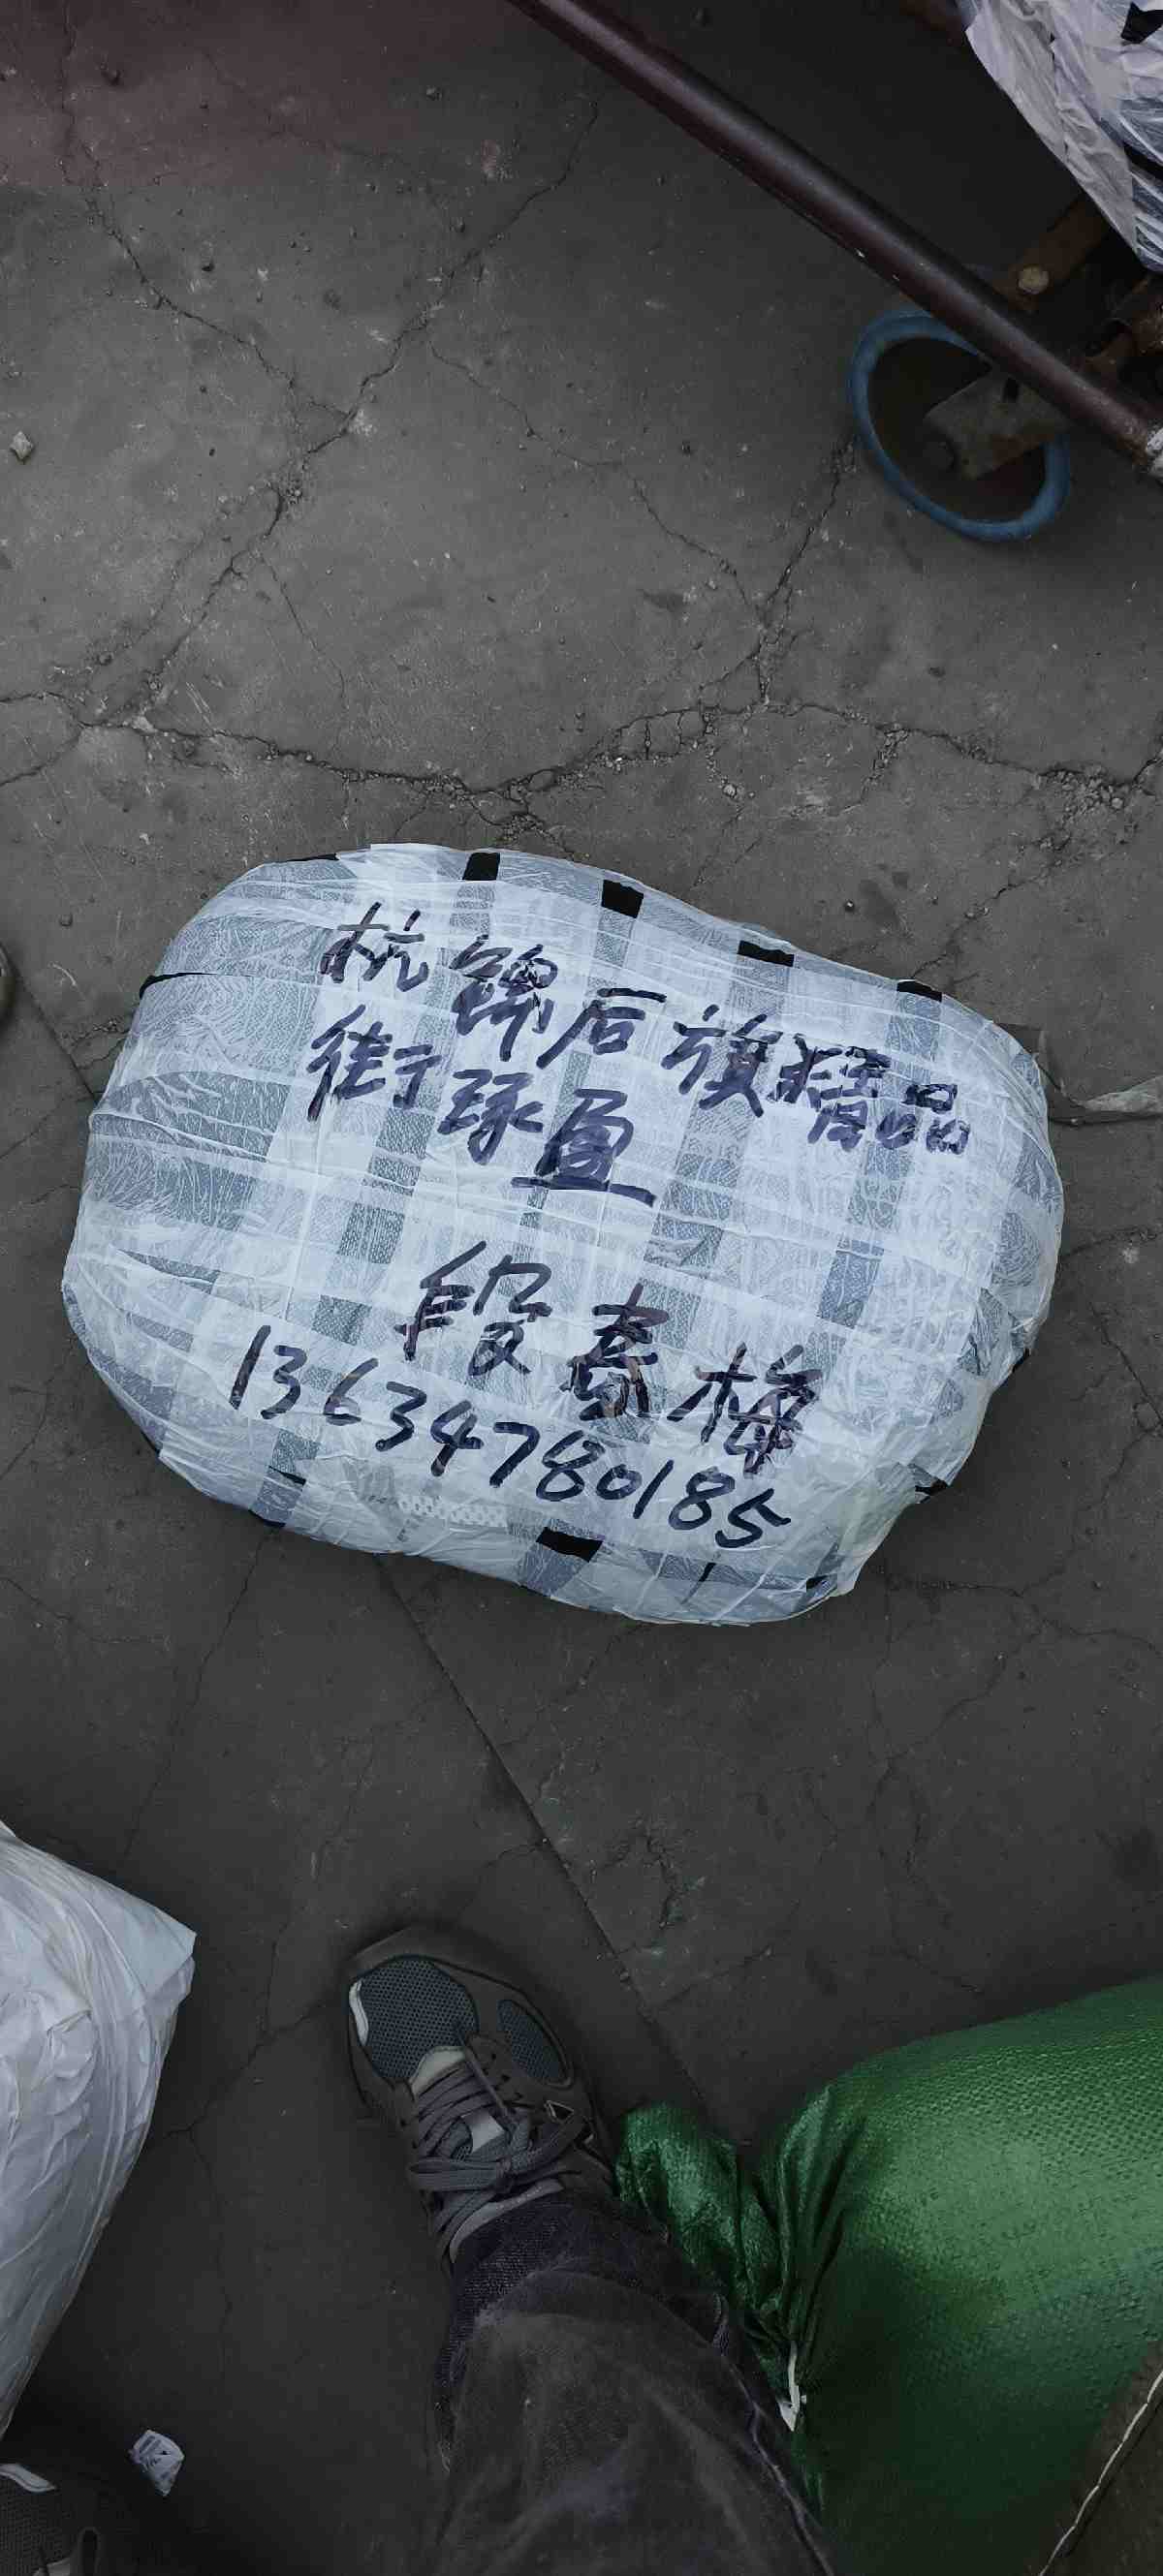 杭锦后旗精品
街琢盈
段素梅
13634780185